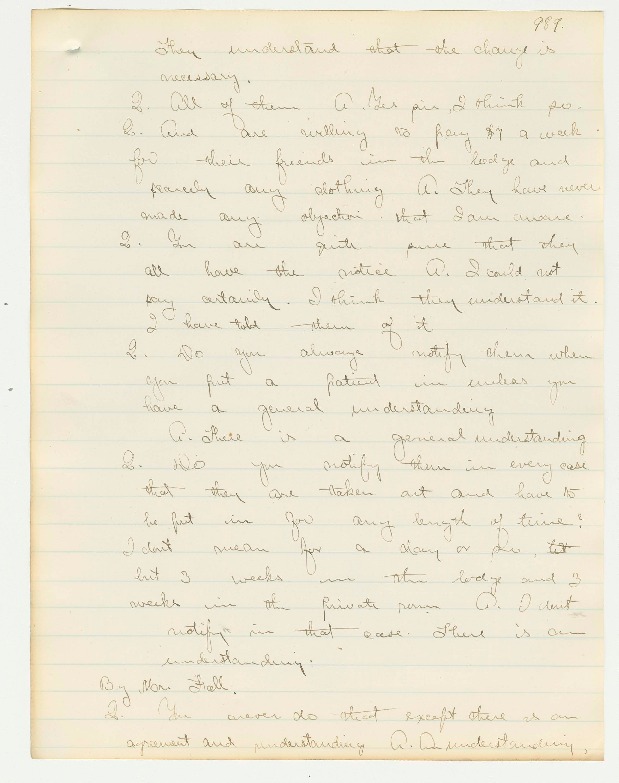 989.
They understand that the change is
necessary.
Q. All of them A. Yes sir, I think so.
Q. And are willing to pay $7 a week
for their friends in the lodge and
scarcely any clothing A. They have never
made any objection that I am aware.
Q. You are quite sure that they
all have the notice A. I could not
say certainly. I think they understand it.
I have told them of it
Q. Do you always notify them when
you put a patient in unless you
have a general understanding
A. There is a general understanding
Q. Do you notify them in every case
that they are taken out and have to
be put in for any length of time?
I don't mean for a day or so,
but 3 weeks in the lodge and 3
weeks in the private room A. I don't
notify in that case. There is an
understanding.
By Mr. Fall.
Q. You never do that except there is an
agreement and understanding A. An understanding,